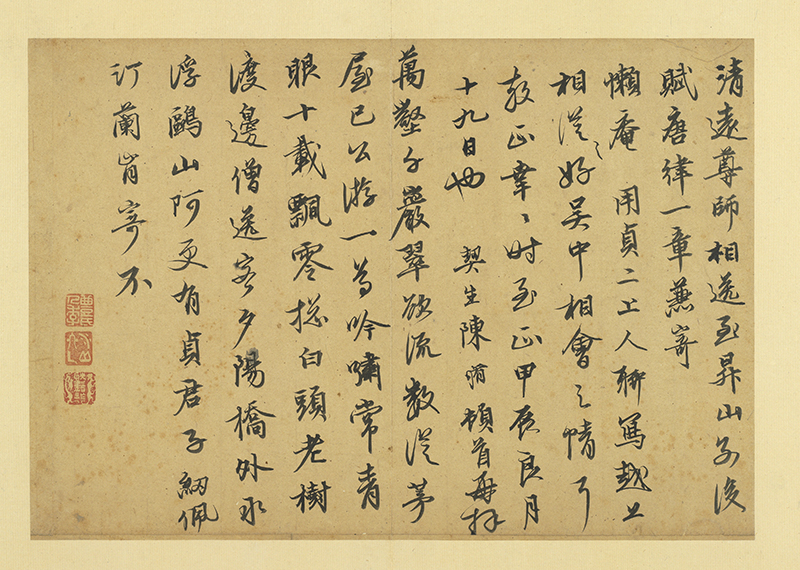 清遠尊師相送至昇山別後
賦唐律一章兼寄
懶庵 用貞二上人聊寫越上
相從好吳中相會之情

教正幸〻時至正甲辰良月
十九日也 契生陳 頓首再拜
萬壑千巖翠欲流數從茅
屋已公游一尊吟嘯常青
眼十載飄零總白頭老樹
渡邊僧送客夕陽橋外水
浮鷗山阿更有貞君子紉佩
汀蘭肯寄不